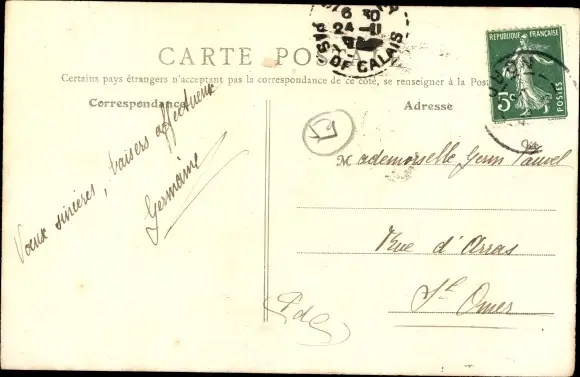 6 30
24 -11
PAS DE CALAIS
REPUBLIQUE FRANÇAISE
5c
POSTES
CARTE POSTALE
Certains pays étrangers n'acceptant pas la correspondance de ce côté, se renseigner à la Poste
Correspondance
Adresse
Voeux sincères, baisers affectueux
Germaine
Mademoiselle Germ
Rue d'Arras
St Omer
PdC